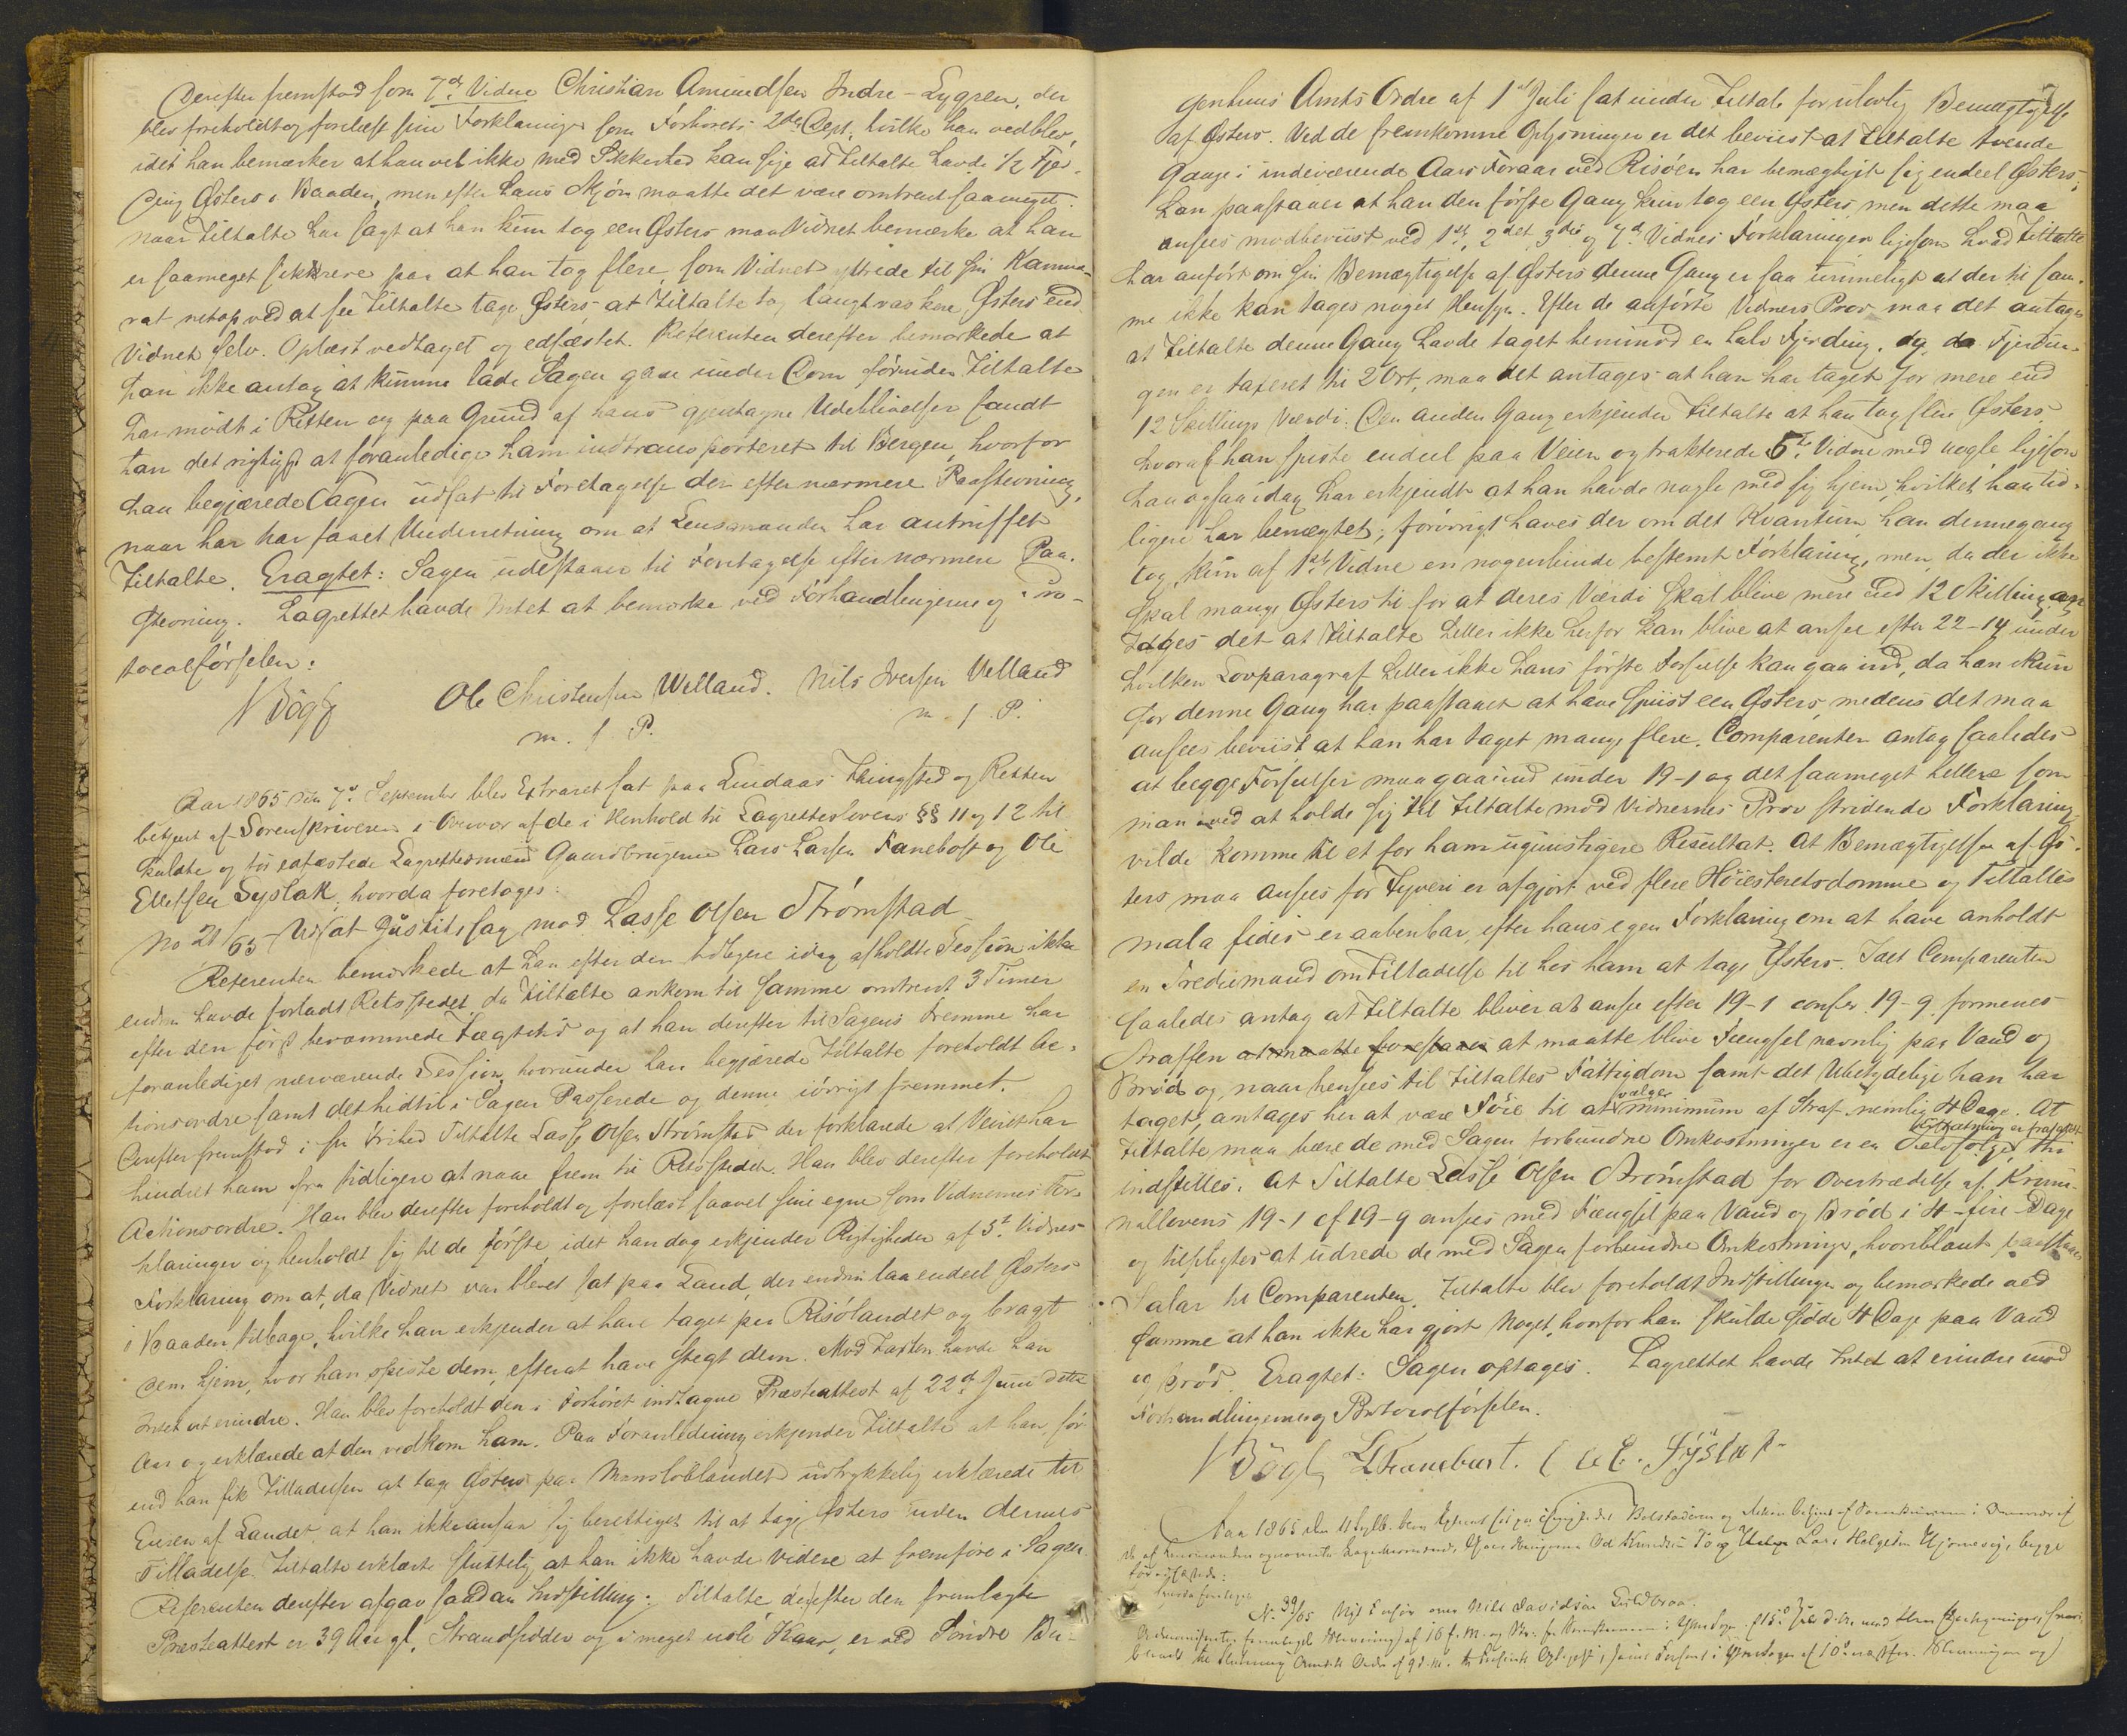 Derefter fremstod som 7de Vidne Christian Amundsen Indre-Lygren, der
blev foreholdt og forelæst sine Forklaringer som Forhørets 2det Dept. hvilke han vedblev,
idet han bemærker at han vel ikke med Sikkerhed kan sige at Tiltalte havde 1/2 Fjer-
ding Østers i Baaden, men efter hans Skjøn maatte det være omtrent saameget.
Naar Tiltalte har sagt at han kun tog een Østers maa Vidnet bemærke at han
er saameget sikkrere paa at han tog flere, som Vidnet yttrede til sin Kamme-
rat netop ved at see Tiltalte tage Østers at Tiltalte tog langt raskere Østers end
Vidnet selv. Oplæst vedtaget og edfæstet. Referenten derefter bemærkede at
han ikke antog at kunne lade Sagen gaae under Dom førinden Tiltalte
har mødt i Retten og paa Grund af hans gjentagne Udeblivelser fandt
han det rigtigst at foranledige ham indtransporteret til Bergen, hvorfor
han begjærede Sagen udsat til Foretagelse der efter nærmere Paastevning,
naar han har faaet Underretning om at Lensmanden har antruffet
Tiltalte. Eragtet: Sagen udestaaer til Foretagelse efter nærmere Paa-
stevning. Lagrettet havde Intet at bemærke ved Forhandlingerne og Pro-
tocolførselen.
NBøgh Ole Christensen Welland. Nils Iversen Velland
m. f. P. m. f. P.
Aar 1865 den 7de September blev Extraret sat paa Lindaas Thingsted og Retten
betjent af Sorenskriveren i Overvær af de i Henhold til Lagretteslovens §§ 11 og 12 til-
kaldte og før edfæstede Lagrettesmænd Gaardbrugerne Lars Larsen Fanebost og Ole
Ellefsen Syslak, hvorda foretoges:
No 21/65 Udsat Justitssag mod Lasse Olsen Strømstad
Referenten bemærkede at han efter den tidligere idag afholdte Session ikke
endnu havde forladt Retsstedet da Tiltalte ankom til samme omtrent 3 Timer
efter den først berammede Tægtetid og at han derefter til Sagens Fremme har
foranlediget nærværende Session, hvorunder han begjærede Tiltalte foreholdt Ac-
tionsordre samt det hidtil i Sagen Passerede og denne iøvrigt fremmet.
Derefter fremstod i fri Frihed Tiltalte Lasse Olsen Strømstad der forklarede at Veiret har
hindret ham fra tidligere at naae frem til Retsstedet. Han blev derefter foreholdt
Actionsordre. Han blev derefter foreholdt og forelæst saavel sine egne som Vidnernes For-
klaringer og henholdt sig til de første, idet han dog erkjender Rigtigheden af 5te Vidnes
Forklaring om at, da Vidnet var blevet sat paa Land, der endnu laa endeel Østers
i Baaden tilbage, hvilke han erkjender at have taget paa Risølandet og bragt
dem hjem, hvor han spiste dem, efterat have stegt dem. Mod Taxten havde han
Intet at erindre. Han blev foreholdt den i Forhøret indtagne Præsteattest af 22de Juni dette
Aar og erklærede at den vedkom ham. Paa Foranledning erkjender Tiltalte at han før-
end han fik Tilladelsen at tage Østers paa Mansløblandet udtrykkelig erklærede til
Eieren af Landet at han ikke ansaa sig berettiget til at tage Østers uden dennes
Tilladelse. Tiltalte erklærte sluttelig at han ikke havde videre at fremføre i Sagen
Referenten derefter afgav saadan Indstilling: Tiltalte der efter den fremlagte
Præsteattest er 39 Aar gl. Strandsidder og i meget usle Kaar, er ved Søndre Ber-
genhuus Amts Ordre af 1ste Juli sat under Tiltale for ulovlig Bemægtigelse
af Østers. Ved de fremkomne Oplysninger er det beviist at Tiltalte tvende
Gange i indeværende Aars Foraar ved Risøen har bemægtiget sig endeel Østers;
han paastaaer at han den første Gang kun tog een Østers, men dette maa
ansees modbeviist ved 1ste, 2det, 3die og 7de Vidnes Forklaringer ligesom hvad Tiltalte
har anført om sin Bemægtigelse af Østers denne Gang er saa urimeligt at der til sam-
me ikke kan tages noget Hensyn. Efter de anførte Vidners Prov maa det antages
at Tiltalte denne Gang havde taget henimod en halv Fjerding. og da Fjerdin-
gen er taxeret til 2 Ort, maa det antages at han har taget for mere end
12 Skillings Værdi. Den anden Gang erkjender Tiltalte at han tog flere Østers
hvoraf han spiste endeel paa Veien og trakterede 5te Vidne med nogle ligesom
han ogsaa idag har erkjendt at han havde nogle med sig hjem, hvilket han tid-
ligere har benægtet; forøvrigt haves der om det Kvantum han dennegang
tog, kun af 1ste Vidne en nogenlunde bestemt Forklaring, men, da der ikke
skal mange Østers til for at deres Værdi skal blive mere end 12 Skilling an-
tages det at Tiltalte heller ikke herfor kan blive at ansee efter 22-14 under
hvilken Lovparagraf heller ikke hans første Forseelse kan gaa ind, da han kun
for denne Gang har paastaaet at have spiist een Østers, medens det maa
ansees beviist at han har taget mange flere. Comparenten antog saaledes
at begge Forseelser maa gaa ind under 19-1 og det saameget hellere som
man ved at holde sig til Tiltaltes mod Vidnernes Prov stridende Forklaring
vilde komme til et for ham ugunstigere Resultat. At Bemægtigelsen af Øs-
ters maa ansees for Tyveri er afgjort ved flere Høiesteretsdomme og Tiltaltes
mala fides er aabenbar, efter hans egen Forklaring om at have anholdt
en Trediemand om Tilladelse til hos ham at tage Østers. Idet Comparenten
saaledes antog at Tiltalte bliver at ansee efter 19-1 confer 19-9 formenes
Straffen at maatte forestaaes at maatte blive Fængsel navnlig paa Vand og
Brød og naar henseees til Tiltaltes Fattigdom samt det Ubetydelige han har
taget, antages her at være Føie til at vælge minimum af Straf nemlig 4 Dage. At
Tiltalte maa bære de med Sagen forbundne Omkostninger er en Selvfølge, thi
indstilles: At Tiltalte Lasse Olsen Strømstad for Overtrædelse af Krimi-
nallovens 19-1 cf 19-9 ansees med Fængsel paa Vand og Brød i 4-fire-Dage
og tilpligtes at udrede de med Sagen forbundne Omkostninger, hvoriblandt paastaaes
Salær til Comparenten. Tiltalte blev foreholdt Indstillingen og bemærkede ved
samme at han ikke har gjort Noget, hvorfor han skulde sidde 4 Dage paa Vand
og Brød. Eragtet: Sagen optages. Lagrettet havde Intet at erindre mod
Forhandlingerne og Protocolførselen.
NBøgh L. L. Fanebust. O. E. Syslak
Aar 1865 den 11 Septb. blev Extraret sat paa Bolstadøren og Retten betjent af Sorenskriveren i Overvær af
Lars Helgesen Hjørnevig, begge
før edfæstede:
hvorda foretoges
No 39/65 Nils Davidsen